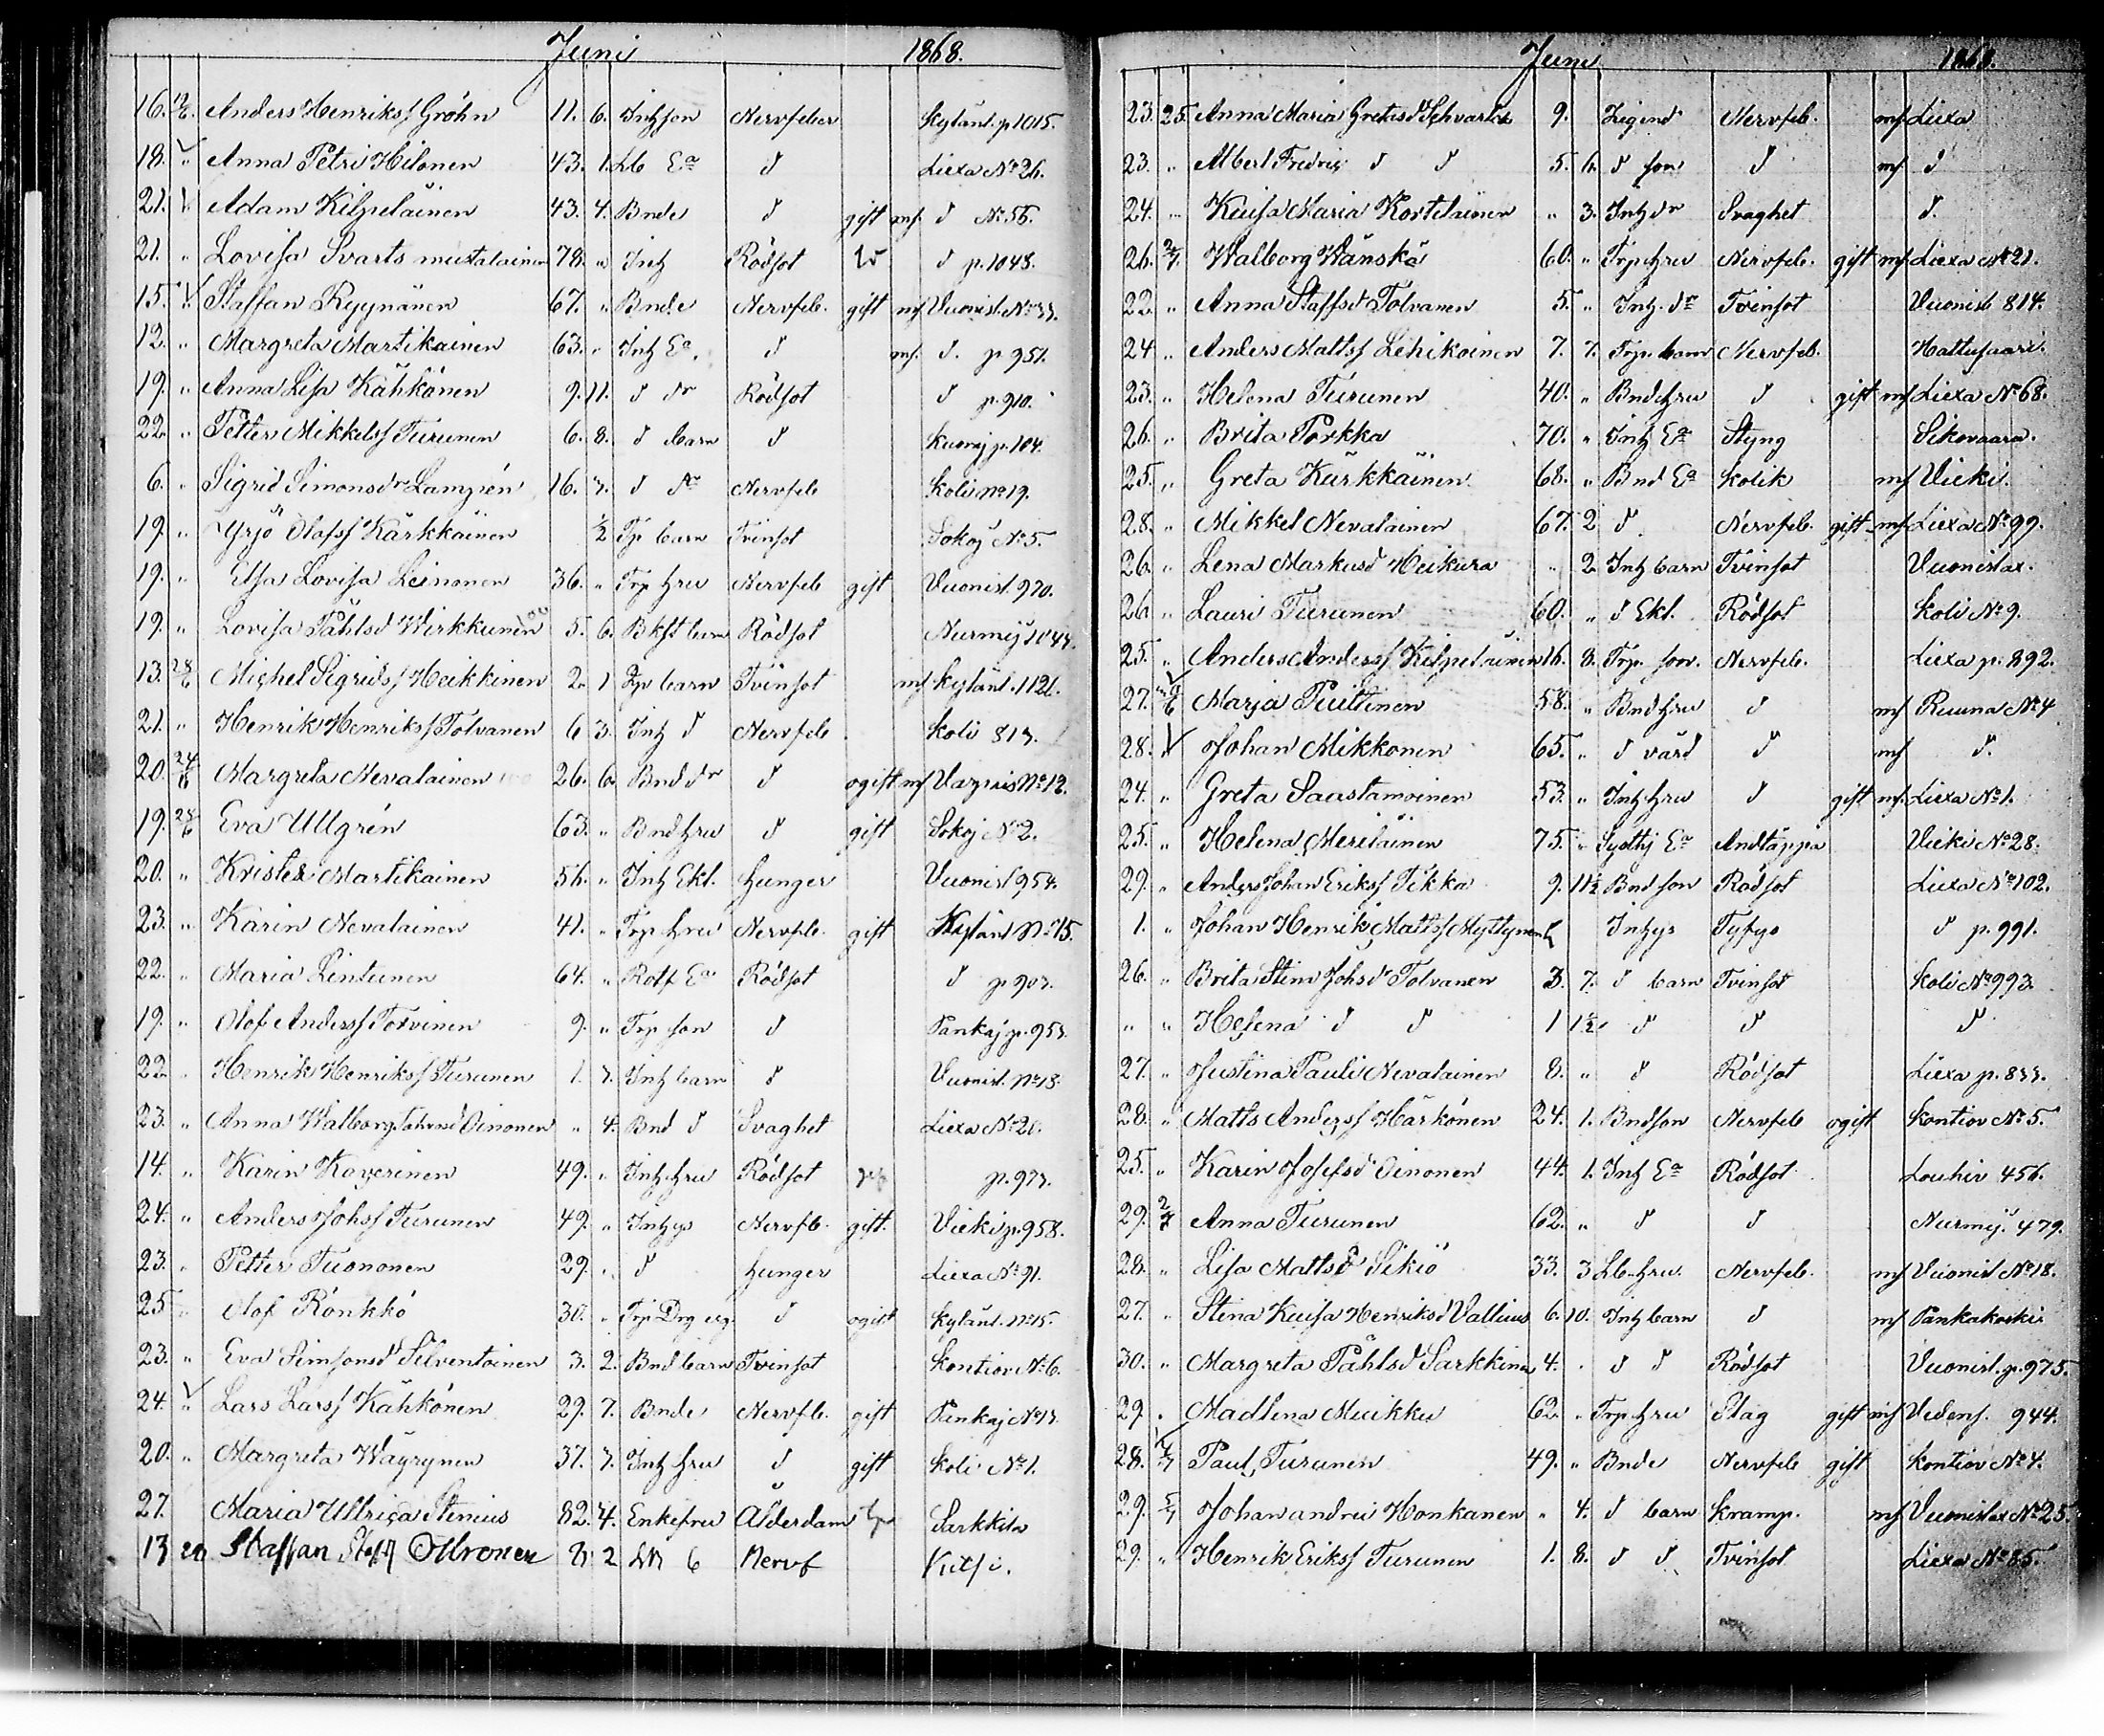 Juni 1868.
16. 19/6. Anders Henrikss Gröhn 11. 6. Inhson Nervfeber Kylänl. p 1015.
18. " Anna Petri Hilonen 43. 1. Lb Ea d Liexa No 26.
21. Adam Kilpeläinen 43. 4. Bnde d gift mf. d No 56.
21. " Lovisa Svarts mustalainen 78. " Inh Rödsot d p. 1048.
15. Staffan Ryynänen 67. " Bnde Nervfeb. gift mf Vuonisl. No 33.
12. " Margreta Martikainen 63. " Inh Ea. d mf. d. p 951.
19. " Anna Lisa Kähkönen 9. 11. d dr Rödsot d p. 910.
22. " Petter Mikkelss Turunen 6. 8. d barn d p. 104.
6. " Sigrid Simonsdr Lampén 16. 3. d dr Nervfeb Koli No 19.
19. " Yrjö Olafss Kärkkäinen ½ Tp barn Tvinsot Sokoj No 5.
19. " Elsa Lovisa Leinonen 36. " Trp hru Nervfeb gift Vuonisl. 970.
19. " Lovisa Påhlsd Wirkkunen 5. 6. Bkst barn Rödsot Nurmij 1044.
13. 28/6 Michel Sigridss Heikkinen 2. 1 Trp barn Tvinsot mf Kylänl. 1121.
21. " Henrik Henrikss Tolvanen 6 3. Inh d Nervfeb Koli 813.
20. 24/6 Margreta Nevalainen 26. 6. Bnd dr d ogift mf No 12.
19. 28/6 Eva Ullgrén 63. " Bnd hru d gift Sokoj No 2.
20. " Krister Martikainen 56. " Inh Ekl. hunger Vuonisl 954.
23. " Karin Nevalainen 41. " Trp hru Nervfeb. gift Kylänl No 15.
22. " Maria Lintunen 64. " Rotf Ea Rödsot d p 903.
19. " Olof Anderss Torvinen 9. " Trp son d Pankaj p. 953.
22. " Henrik Henrikss Turunen 1. 3. Inh barn d Vuonisl. No 13.
23. " Anna Walborg Oinonen " 4. Bnd d Svaghet Liexa No 20.
14. " Karin Kaverinen 49. " Inh hru Rödsot p. 973.
24. " Anders Johss Turunen 49. " Inhgs Nervfb. gift. Vieki p. 958.
23. " Petter Tuononen 29. " d hunger Liexa No 91.
25 " Olof Rönkkö 30. " Trp Drg d ogift Kylänl. No 15.
23. " Eva Simonsd Silventoinen 3. 2. Bnd barn Tvinsot Kontiov No 6.
24. " Lars Larss Kähkönen 29. 7. Bnde Nervfb. gift Pankaj No 13.
20. " Margreta Wäyrynen 37. 3. Inh hru d gift Koli No 1.
27. Maria Ullrica Stenius 82. 4. Enkefru Ålderdom Sarkkila
13 Staffan Staffs Ollronen 2 Nervf
Juni 1868.
23. 25. Anna Maria Gretasd Schvartz 9. Zigend Nervfeb. mf Liexa
23. " Albert Fredric d d 5. 6. d son d mf d
24. " Kuisa Maria Kortelainen " 3. Inh dr Svaghet d.
26. 2/7. Walborg Wänskä 60. " Trp hru Nervfeb. gift mf Liexa No 21.
22. " Anna Staffsd Tolvanen 5. " Inh. dr Tvinsot Vuonisl 814.
24 " Anders Mattss Lehikoinen 7. 7. Trp. barn Nervfeb. Hattusaari.
23. " Helena Turunen 40. " Bndhru d gift mf Liexa No 68.
26. " Brita Porkka 70. " Inh Ea Styng Sikovaara.
25. " Greta Kärkkäinen 68. " Bnd Ea Kolik mf Vieki.
28. " Mikkel Nevalainen 67. 2 d Nervfeb. gift mf Liexa No 99.
26. " Lena Markusd Heikura " 2 Inh barn Tvinsot Vuonislax.
26. " Lauri Turunen 60. " d Ekl. Rödsot Koli No 9.
25. " Anders Anderss Kilpeläinen 16. 8. Trp. son. Nervfeb. Liexa p. 892.
27. Marja Puittinen 58. " Bndhru d mf Ruuna No 4
28. Johan Mikkonen 65. " d värd d mf d.
24. " Greta Saastamoinen 53. " Inh hru d gift mf. Liexa No 1.
25. " Helena Meriläinen 75. " Sytthj Ea Andtäppa Vieki No 28.
29. " Anders Johan Erikss Tikka 9. 11½ Bnd son Rödsot Liexa No 102.
1. " Johan Henrik Mattss Myttynen Inhgs Tyfys d p. 991.
26. " Brita Stina Johsd Tolvanen 3. 7. d barn Tvinsot Koli No 993.
" " Helena d d 1 1½ d d d
27. " Justina Pauli Nevalainen 8. " d Rödsot Liexa p. 833.
28. " Matts Anderss Härkönen 24. 1. Bndson Nervfeb ogift Kontiov No 5.
25. " Karin Josefsd Oinonen 44. 1. Inh Ea Rödsot Louhiv 456.
29. 2/7 Anna Turunen 62. " d d Nurmij. 479.
28. " Lisa Mattsd Sikiö 33. 3 Lb hru. Nervfeb. mf Vuonisl No 18.
27. " Stina Kuisa Henriksd Vallius 6. 10. Inh barn d mf Pankakoski
30. " Margreta Påhlsd Sarkkinen 4. " d d Rödsot Vuonisl. p. 975.
29. " Madlena Muikku 62. " Trp hru Slag gift mf 944.
28. 7/7 Paul Turunen 49. " Bnde Nervfeb gift Kontiov No 4.
29. 5/7 Johan andrei Honkanen " 4. d barn Kramp. mf Vuonislax No 25.
29. " Henrik Erikss Turunen 1. 8. d d. Tvinsot Liexa No 85.